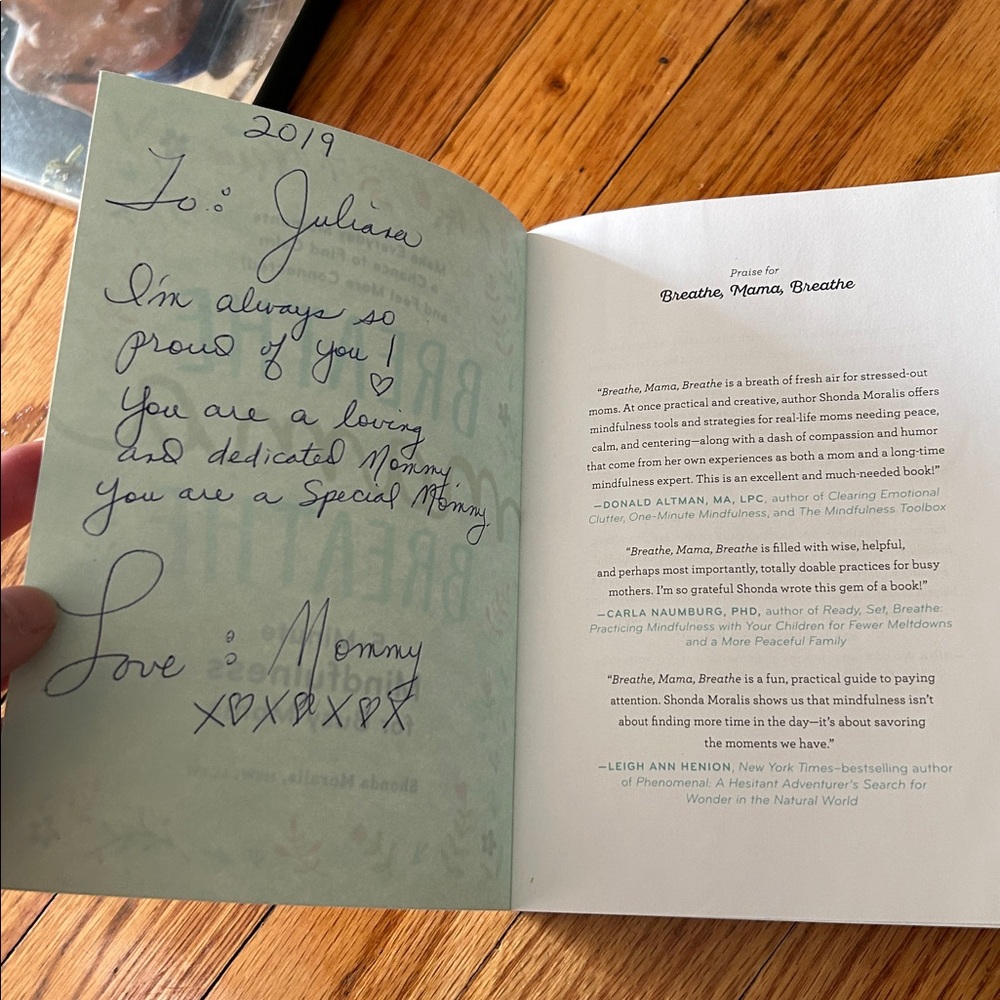 2019
To: Juliana
I'm always so
proud of you!
You are a loving
and dedicated Mommy
You are a Special Mommy.
Love: Mommy
X♡X♡X♡X
Praise for
Breathe, Mama, Breathe
“Breathe, Mama, Breathe is a breath of fresh air for stressed-out
moms. At once practical and creative, author Shonda Moralis offers
mindfulness tools and strategies for real-life moms needing peace,
calm, and centering—along with a dash of compassion and humor
that come from her own experiences as both a mom and a long-time
mindfulness expert. This is an excellent and much-needed book!”
—DONALD ALTMAN, MA, LPC, author of Clearing Emotional
Clutter, One-Minute Mindfulness, and The Mindfulness Toolbox
“Breathe, Mama, Breathe is filled with wise, helpful,
and perhaps most importantly, totally doable practices for busy
mothers. I’m so grateful Shonda wrote this gem of a book!”
—CARLA NAUMBURG, PHD, author of Ready, Set, Breathe:
Practicing Mindfulness with Your Children for Fewer Meltdowns
and a More Peaceful Family
“Breathe, Mama, Breathe is a fun, practical guide to paying
attention. Shonda Moralis shows us that mindfulness isn’t
about finding more time in the day—it’s about savoring
the moments we have.”
—LEIGH ANN HENION, New York Times–bestselling author
of Phenomenal: A Hesitant Adventurer’s Search for
Wonder in the Natural World